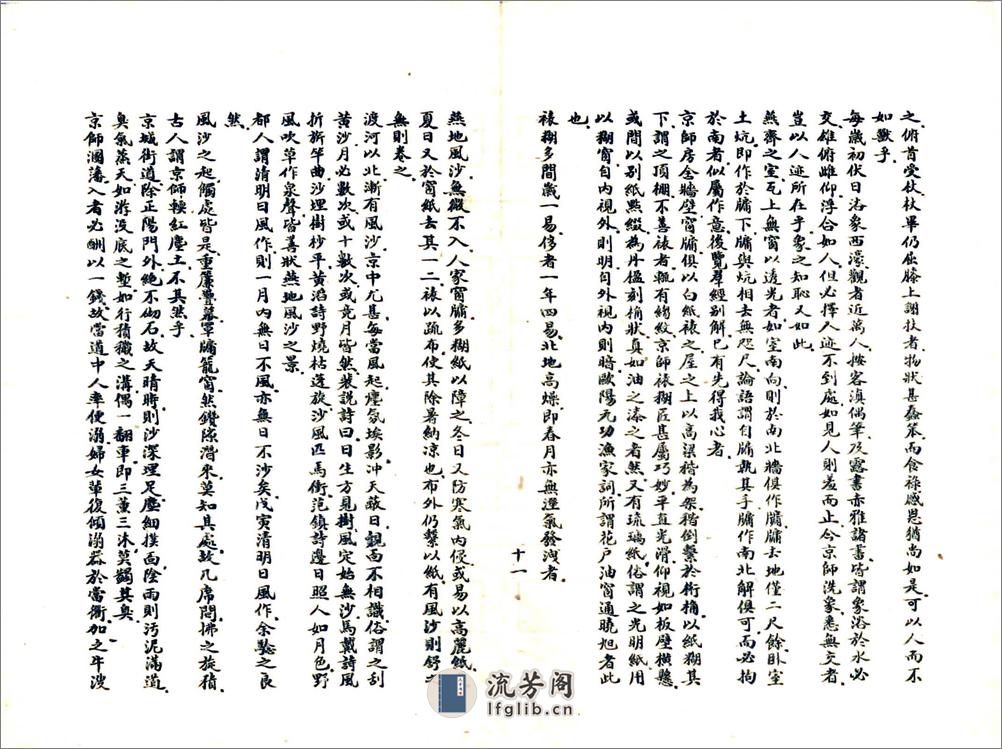 之俯首受杖杖畢仍屈膝上謝扶者物狀甚蠢笨而食祿感恩猶尚如是可以人而不
如獸乎
每歲初伏日浴象西濠觀者近萬人按客滇偶筆及露書亦雅諸書皆謂象浴於水必
交雄俯雌仰浮合如人但必擇人迹不到處如見人則羞而止今京師洗象悉無交者
豈以人迹所在乎象之知恥又如此
燕齋之室瓦上無窗以透光者如室南向則於南北牆俱作牖牖去地僅二尺餘臥室
土坑即作於牖下牖與炕相去無咫尺論語謂自牖執其手牖作南北解俱可而必拘
於南者似屬作意後覽羣經別解已有先得我心者
京師房舍牆壁窗牖俱以白紙裱之屋之上以高梁稭為架稭倒繫於桁桷以紙糊其
下謂之頂棚不善裱者輒有縐紋京師裱糊匠甚屬巧妙平直光滑仰視如板壁橫懸
或間以別紙點綴為丹楹刻桷狀真如油之漆之者然又有琉璃紙俗謂之光明紙用
以糊窗自內視外則明自外視內則暗歐陽元功漁家詞所謂花戶油窗通曉旭者此
也
裱糊多間歲一易侈者一年四易北地高燥即春月亦無溼氣發洩者
十一
燕地風沙無微不入人家窗牖多糊紙以障之冬日又防寒氣內侵或易以高麗紙
夏日又於窗紙去其一二裱以疏布使其除暑納涼也布外仍繫以紙有風沙則舒之
無則卷之
渡河以北漸有風沙京中尤甚每當風起塵氛埃影冲天蔽日覿面不相識俗謂之刮
黃沙月必數次或十數次或竟月皆然裴說詩曰日生方見樹風定始無沙馬戴詩風
折旂竿曲沙埋樹杪平黃滔詩野燒枯蓬旋沙風匹馬衝范鎮詩邊日照人如月色野
風吹草作泉聲皆善狀燕地風沙之景
都人謂清明日風作則一月內無日不風亦無日不沙矣戊寅清明日風作余驗之良
然
風沙之起觸處皆是重簾疊幕罩牖籠窗然鑽隙潛來莫知其處故几席間拂之旋積
古人謂京師輭紅塵土不其然乎
京城街道除正陽門外絕不砌石故天晴時則沙深埋足塵細撲面陰雨則污泥滿道
臭氣蒸天如游沒底之塹如行積穢之溝偶一翻車即三薰三沐莫蠲其臭
京師溷藩入者必酬以一錢故當道中人率便溺婦女輩復傾溺器於當衢加之牛溲
流芳阁
lfglib.cn